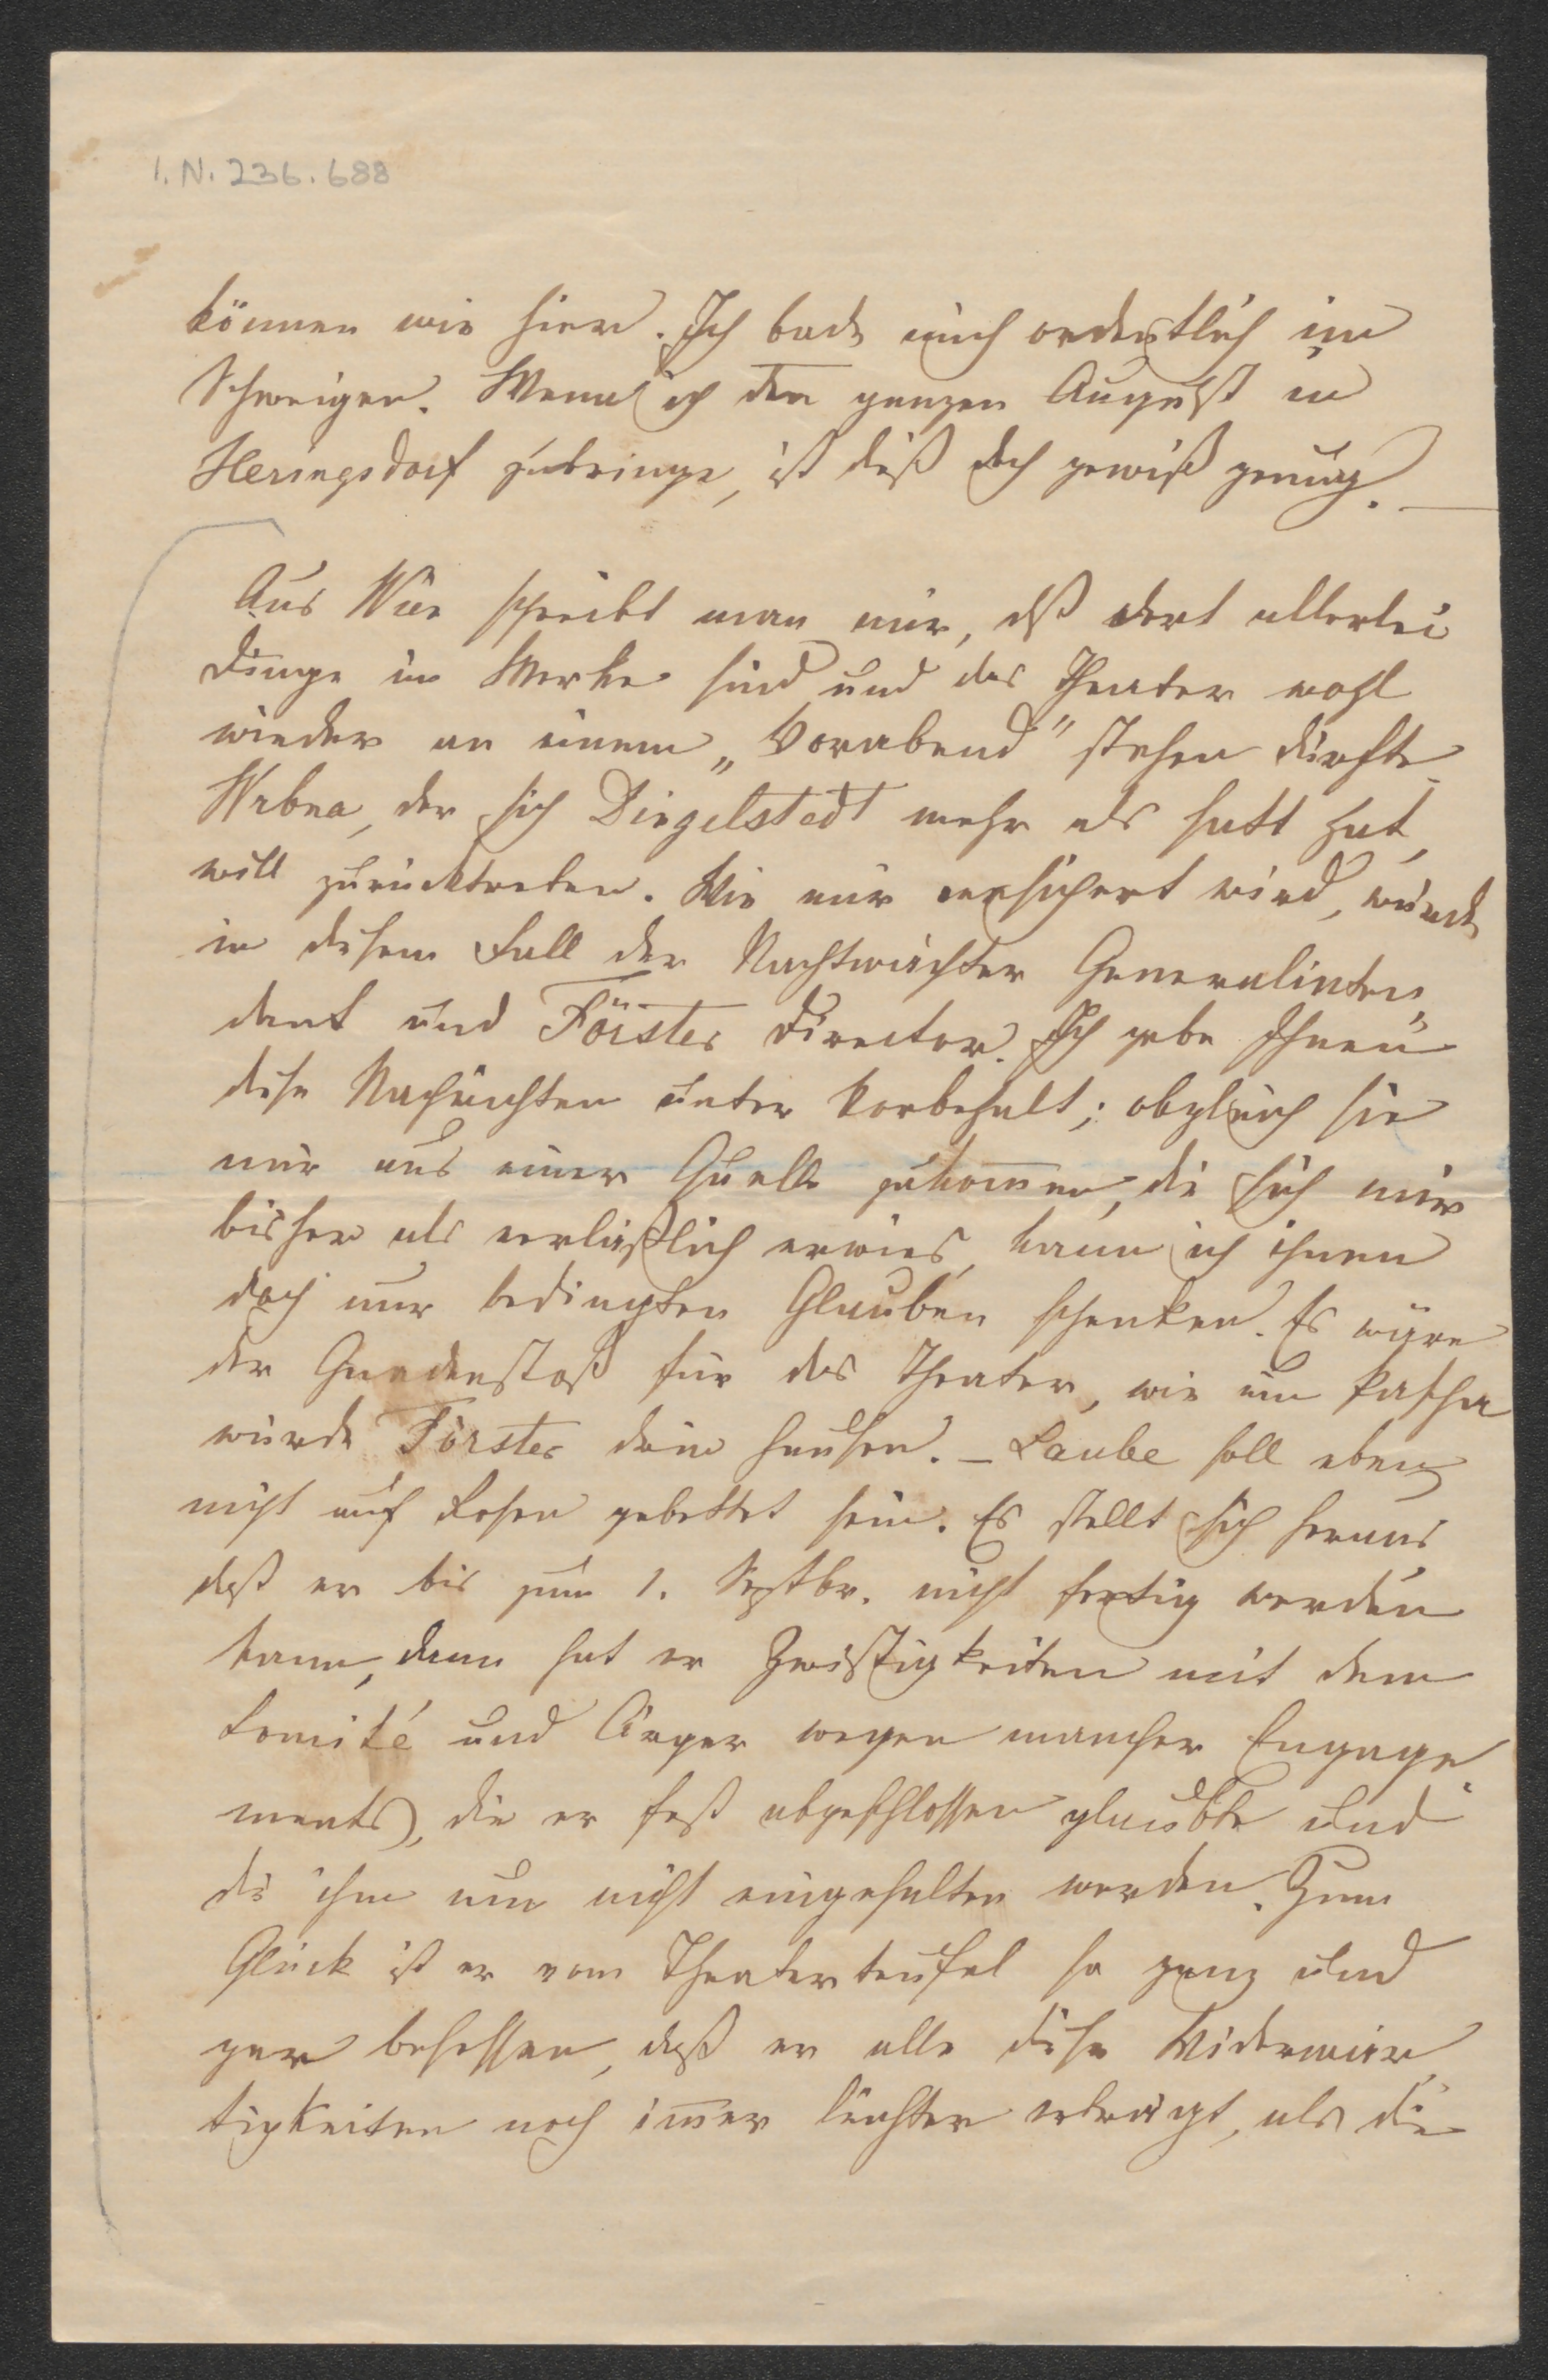 I.N. 236.688
können wie hier. Ich bade mich ordentlich im
Schweigen. Wenn ich den ganzen August in
Heringsdorf zubringe, ist diß doch gewiß genug. —
Aus Wien schreibt man mir, daß dort allerlei
Dinge im Werke sind und das Theater wohl
wieder an einem „Vorabend" stehen dürfte.
Wrbna, der sich Dingelstedt mehr als satt hat,
will zurücktreten. Wie mir versichert wird, würde
in disem Fall der Nachtwächter Generalinten„
dant und Förster Director. Ich gebe Ihnen
dise Nachrichten unter Vorbehalt; obgleich sie
mir aus einer Quelle zukom̅en, die sich mir
bisher als verläßlich erwies, kann ich ihnen
doch nur bedingten Glauben schenken. Es wäre
der Gnadenstoß für das Theater, wie ein Pascha
würde Förster drin hausen. – Laube soll eben
nicht auf Rosen gebettet sein. Es stellt sich heraus
daß er bis zum 1. Septbr. nicht fertig werden
kann, dann hat er Zwistigkeiten mit dem
Comité und Ärger wegen mancher Engage„
ments, die er fest abgeschlossen glaubte und
di ihm nun nicht eingehalten werden. Zum
Glück ist er vom Theaterteufel so ganz und
gar besessen, daß er alle dise Widerwär„
tigkeiten noch im̅er leichter erträgt, als die